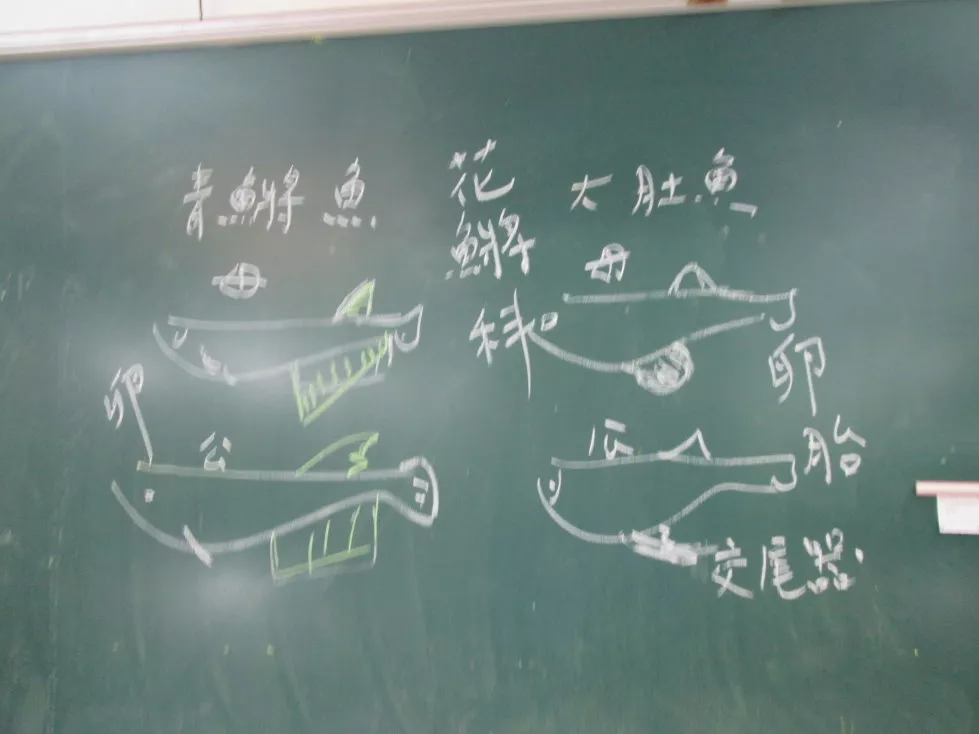 青鱂魚
母
卵
公
花鱂科
大肚魚
母
卵胎
公
交尾器